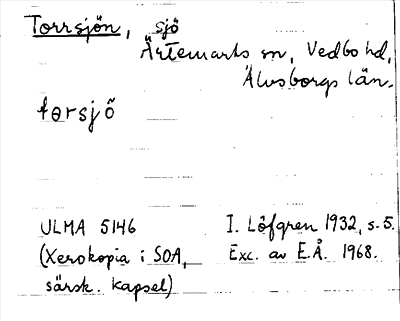 Torrsjön, sjö
Ärtemarks sn, Vedbo hd,
Älvsborgs län.
tørsjö
ULMA 5146
(Xerokopia i SOA,
särsk. kapsel)
I. Löfgren 1932, s. 5.
Exc. av E.Å. 1968.